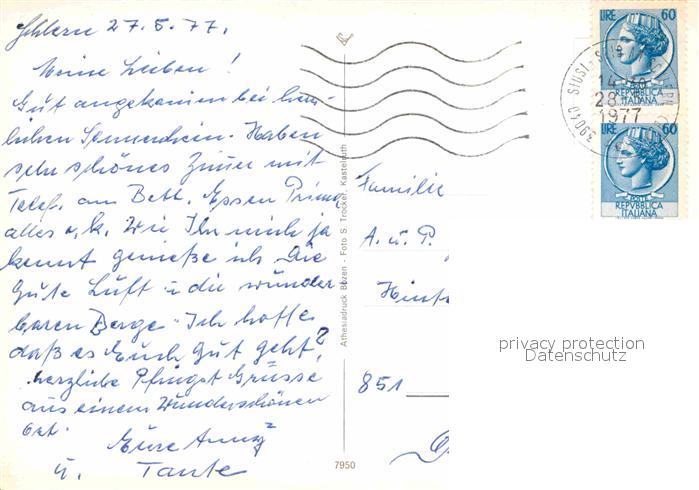 Schlern 27.5.77.
Meine Lieben!
Gut angekommen bei herr-
lichem Sonnenschein. Haben
sehr schönes Zimmer mit
Telef. am Bett. Essen Prima
alles o.k. Wie Ihr mich ja
kennt genieße ich die
Gute Luft u die wunder
baren Berge. Ich hoffe
daß es Euch gut geht?
herzliche Pfingst Grüsse
aus einem wunderschönen
Ort.
Eure
u. Tante
Athesiadruck Bozen - Foto S. Trocker, Kastelruth
7950
Familie
A. u. P.
Hint
851
LIRE 60
POSTE
REPVBBLICA
ITALIANA
LIRE 60
POSTE
REPVBBLICA
ITALIANA
39040 SIUSI
28
1977
privacy protection
Datenschutz